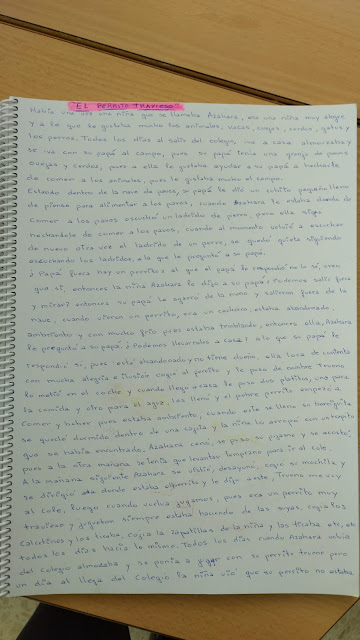 "EL PERRITO TRAVIESO"
Había una vez una niña que se llamaba Azahara, era una niña muy alegre
y a la que le gustaba mucho los animales, vacas, ovejas, cerdos, gatos y
los perros. Todos los días al salir del colegio, iva a casa almorzaba y
se iva con su papá al campo, pues su papá tenía una granja de pavos
ovejas y cerdos, pues a ella le gustaba ayudar a su papá a hecharle
de comer a los animales, pues le gustaba mucho el campo.
Estando dentro de la nave de pavos, su papá le dió un cubito pequeño lleno
de pienso para alimentar a los pavos, cuando Azahara le estaba dando de
comer a los pavos escuchó un ladrido de perro, pero ella siguió
hechandole de comer a los pavos, cuando al momento volvió a escuchar
de nuevo otra vez el ladrido de un perro, se quedó quieta siguiendo
escuchando los ladridos, a la que le preguntó a su papá.
¿Papá fuera hay un perrito? al que el papá le respondió no lo sé, creo
que sí, entonces la niña Azahara le dijo a su papá ¿Podemos salir fuera
y mirar? entonces su papá la agarró de la mano y salieron fuera de la
nave, cuando vieron un perrito, era un cachorro, estaba abandonado,
ambriento y con mucho frío pues estaba temblando, entonces ella, Azahara
le preguntó a su papá ¿Podemos llevarlo a casa? a lo que su papá le
respondió: sí, pues está abandonado y no tiene dueño, ella loca de contenta
con mucha alegría e ilusión cogió al perrito y le puso de nombre Trueno
lo metió en el coche y cuando llegó a casa le puso dos platitos, uno para
la comida y otro para el agua, los llenó y el pobre perrito empezó a
comer y haber pues estaba ambriento, cuando este se lleno su barriguita
se quedó dormido dentro de una cajita y la niña lo arropó con un trapito
que se había encontrado, Azahara cenó, se puso su pijama y se acostó,
pues a la otra mañana se tenía que levantar temprano para ir al cole.
A la mañana siguiente Azahara se vistió, desayunó, cogió su mochila y
se dirigió donde estaba el perrito y le dijo a este, Trueno me voy
al cole, luego cuando vuelva jugamos, pues era un perrito muy
travieso y juguetón siempre estaba haciendo de las suyas, cogía los
calcetines y los tiraba, cogía la zapatillas de la niña y las tiraba etc, etc
todos los días hacía lo mismo. Todos los días cuando Azahara volvía
del colegio almorzaba y se ponía a jugar con su perrito trueno pero
un día al llegar del colegio la niña vió que su perrito no estaba